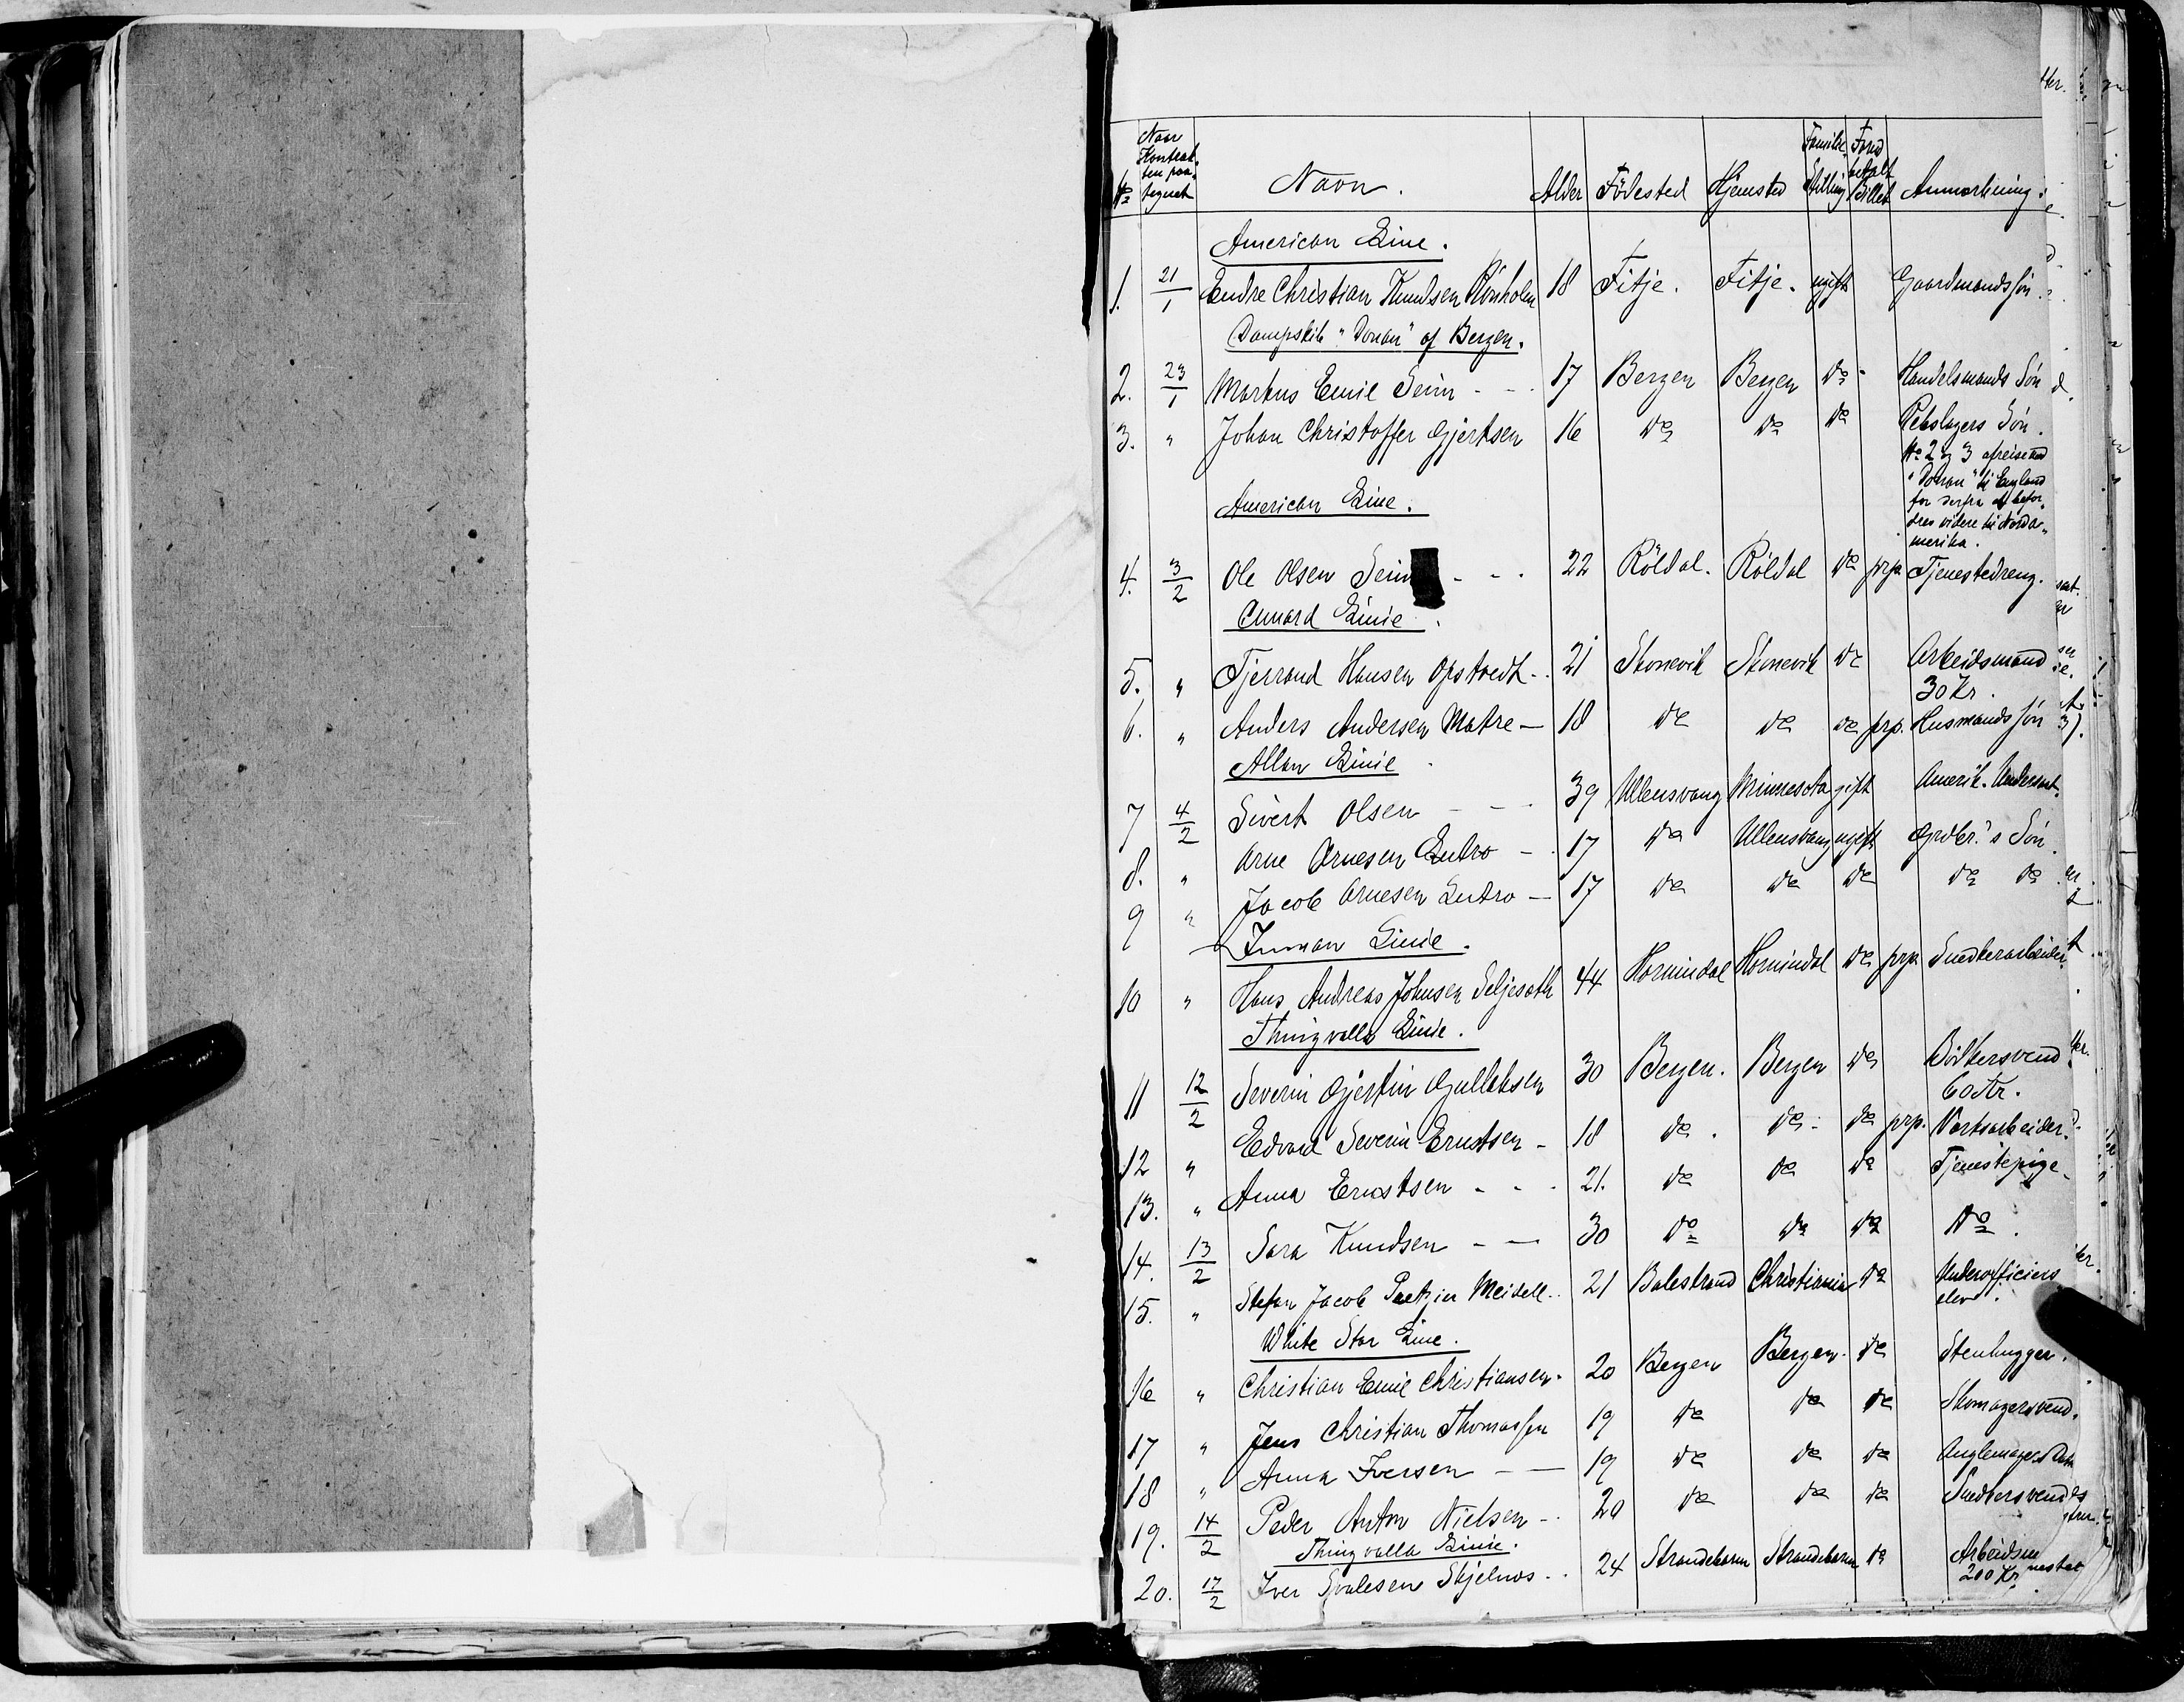 No Naar Kontrakten paategnet Navn. Alder Födested Hjemsted Familiestilling Forudbetalt Billet Anmærkning.
American Line.
1. 21/1 Endre Christian Knudsen Rönholm 18 Fitje. Fitje. ugift Gaardmands søn
Dampskib "Donau" af Bergen.
2. 23/1 Markus Emil Seim - - 17 Bergen Bergen do - Handelsmands Søn
3. " Johan Christoffer Gjertsen 16 do do do Rebslagers Søn.
No 2 og 3 afreise med
"Donau" til England
for derfra at befor-
dres videre til Norda-
merika.
American Line.
4. 3/2 Ole Olsen Seim - - - 22 Röldal. Röldal do prp Tjenestedreng.
Cunard Linie.
5. " Tjerrand Hansen Opstvedt - 21 Skonevik Skonevik do Arbeidsmand
30 Kr.
6. " Anders Andersen Matre — 18 do do do prp. Husmands søn
Allan Linie
7 4/2 Sivert Olsen - - - 39 Ullensvang Minnesota gift Amerik. Undersaat.
8. " Arne Arnesen Lutro - 17 do Ullensvang ugift Grdbr.'s Søn.
9 " Jacob Arnesen Lutro — 17 do do do do do
Inman Linie.
10 " Hans Andreas Johnsen Seljesæth 44 Hornindal Hornindal do prp Snedkerarbeider
Thingvalla Linie.
11 12/2 Severin Gjertin Gullaksen 30 Bergen. Bergen do Bödkersvend
60 Kr.
12 " Edvard Severin Ernstsen - 18 do. do - do prp. Værftsarbeider.
13. " Anna Ernstsen - - - 21. do do do Tjenestepige
14. 13/2 Sara Knudsen - — 30 do do do Do.
15. " Stefan Jacob Meidell. 21 Balestrand Christiania do Underofficiers
elev.
White Star Line.
16 " Christian Emil Christiansen. 20 Bergen Bergen. do Stenhugger.
17 " Jens Christian Thomassen 19 do do do Skomagersvend.
18 " Anna Iversen - — 19 do do do
19. 14/2 Peder Anton Nielsen - 20 do do do Snedkersvend
Thingvalla Linie.
20. 17/2 Iver Skjelnes - 24 Strandebarm Strandebarm do
200 Kr.